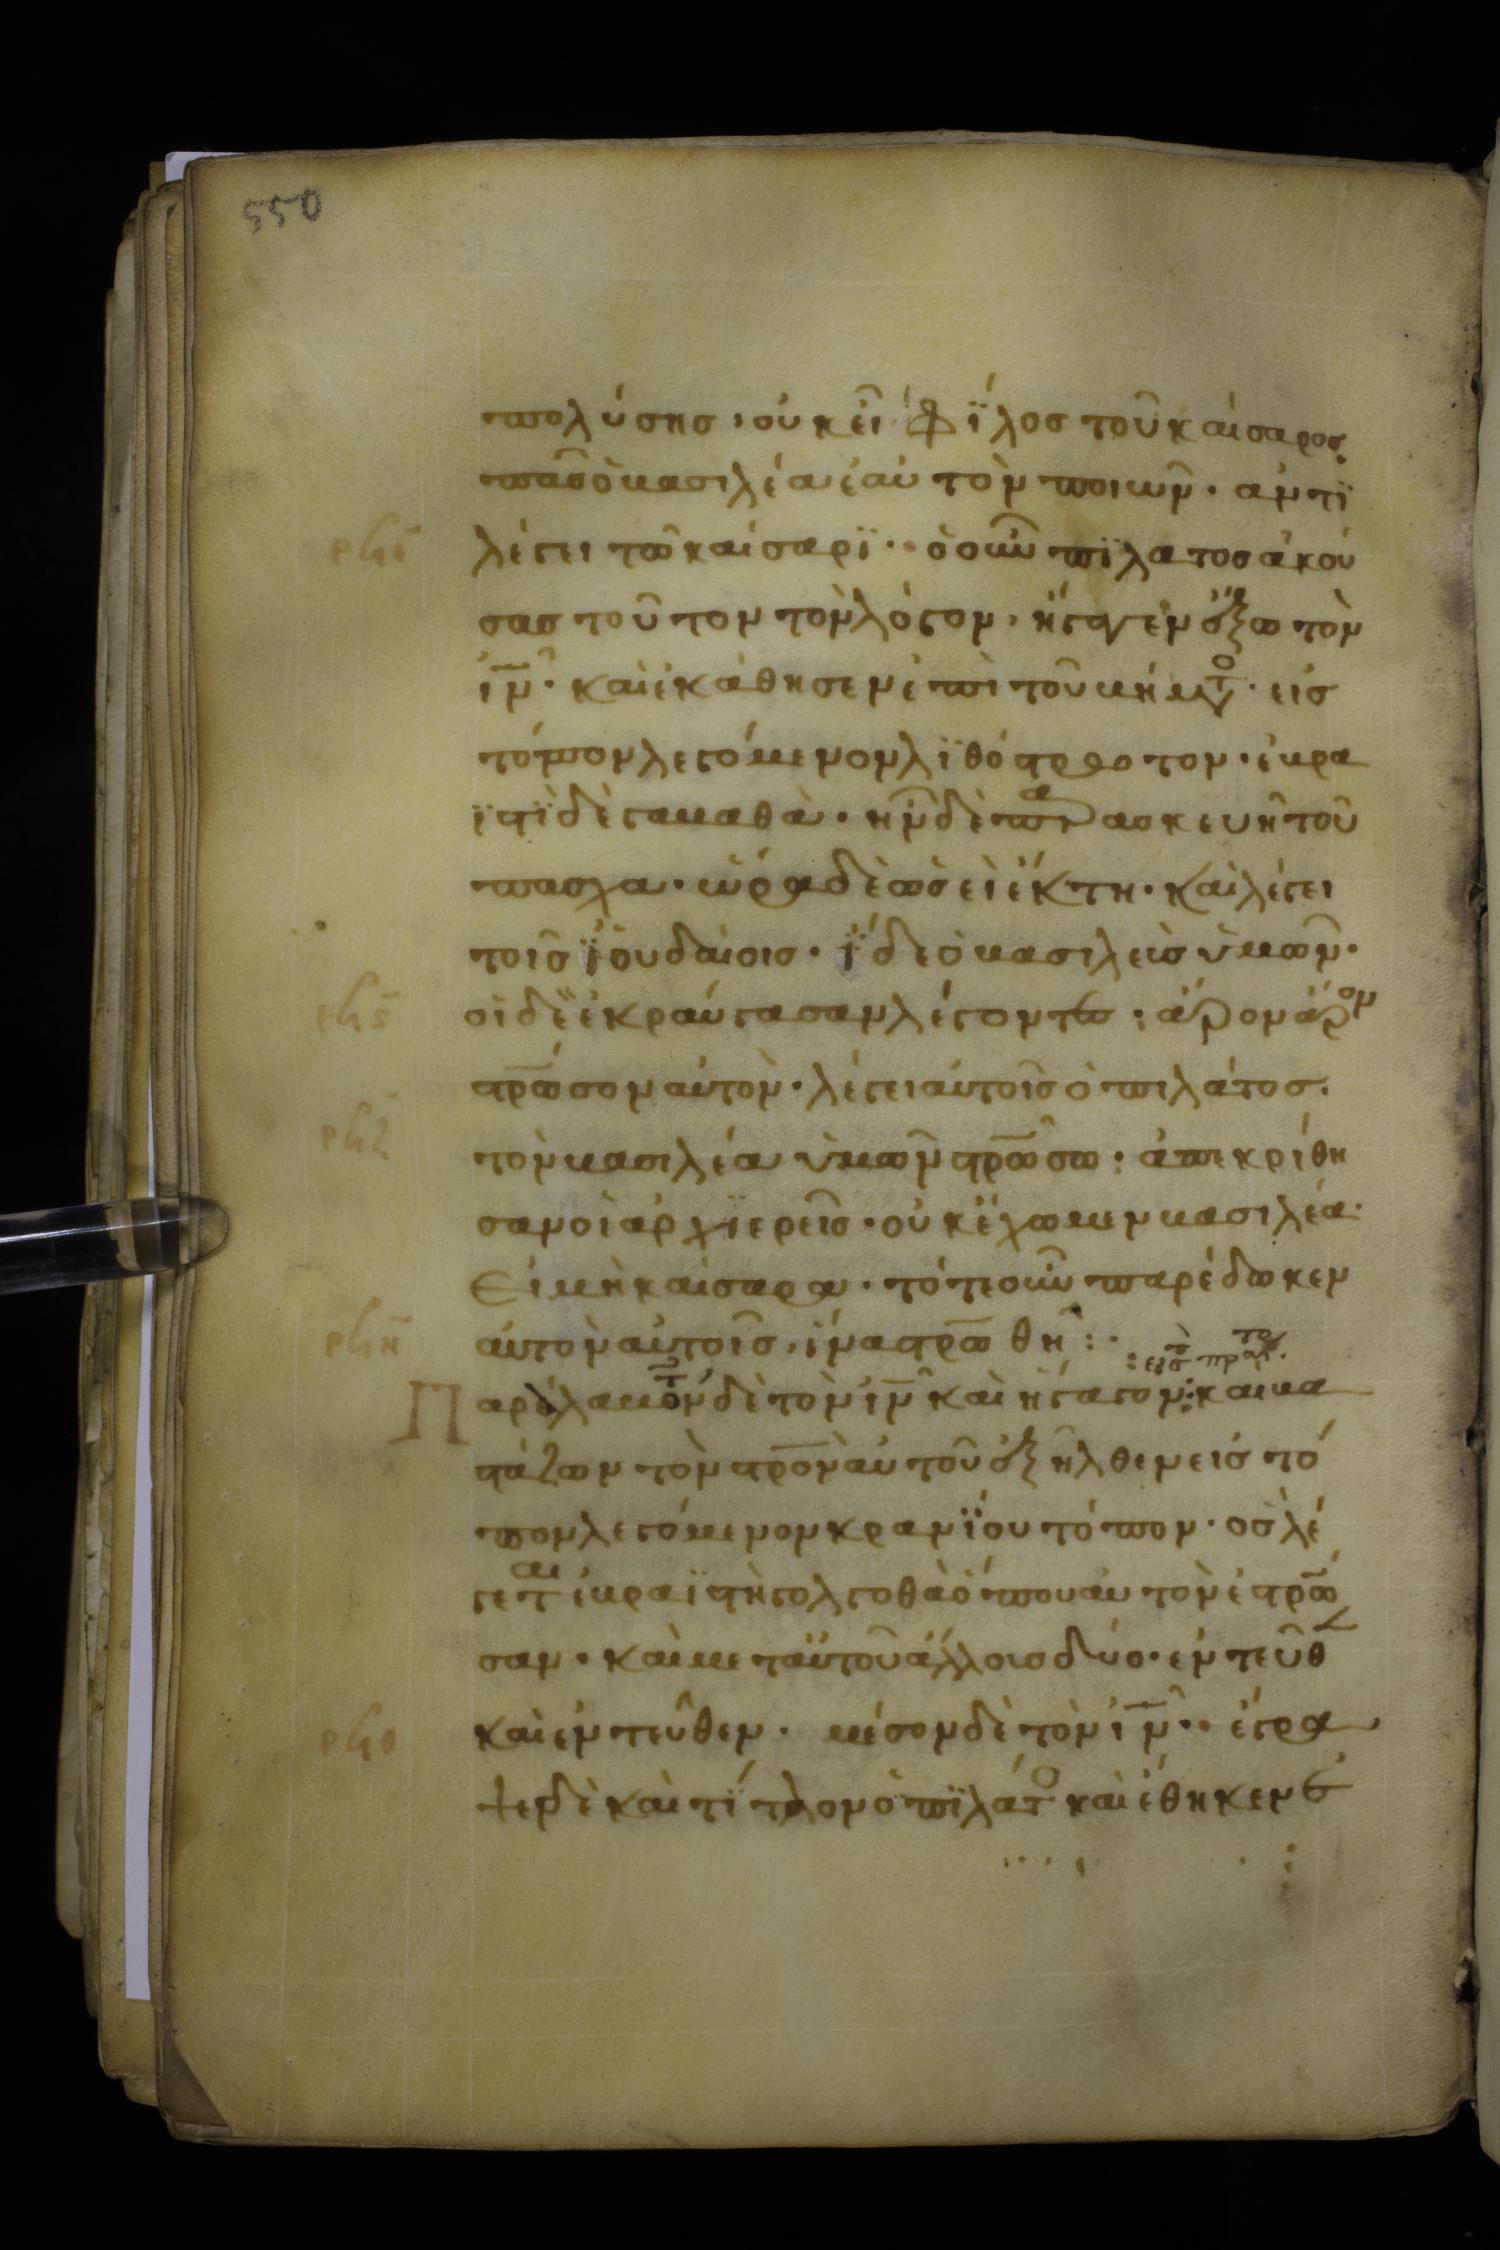 550
πολύσης, οὐκ εἶ φίλος τοῦ καίσαρος
πᾶς ὁ βασιλέα ἑαυτὸν ποιῶν· ἀντϊ
ρϟε λέγει τῶ καίσαρϊ·· ὁ οὖν πϊλατος ἀκού
σας τοῦτον τὸν λόγον, ἤγαγεν ἔξω τὸν
ἰν̅· καὶ ἐκάθησεν ἐπὶ τοῦ βήματο· εἰς
τόπον λεγόμενον λϊθόστρωτον· ἑβρα
ϊστϊ δὲ γαβαθὰ· ἦν δὲ παρασκευὴ τοῦ
πασχα· ὥρα δὲ ὡσεὶ ἕκτη· καὶ λέγει
τοῖς ϊουδαίοις· ϊδε ὁ βασιλεὺς ὑμῶν·
ρϟς οἱ δὲ ἐκραύγασαν λέγοντες· ἆρον ἆρον
στρω̅σον αὐτὸν· λέγει αὐτοῖς ὁ πιλάτος·
ρϟζ τὸν βασιλέα ὑμῶν στρω̅σω· ἀπεκρίθη
σαν οἱ ἀρχϊερεῖς· οὐκ ἔχωμεν βασιλέα·
Εἰ μὴ καίσαρα· τότε οὖν παρέδωκεν
ρϟη αὐτὸν αὐτοῖς, ἵνα στρω̅θῆ :·
Παρέλαβον δὲ τὸν ἰν̅ καὶ ἤγαγον: καὶ βα
στάζων τὸν στρο̅ν αὐτοῦ ἐξῆλθεν εἰς τό
πον λεγόμενον κρανϊου τόπον· ὃς λέ
γεται ἑβραϊστὴ γολγοθὰ ὅπου αὐτὸν ἐστρω̅
σαν· καὶ μετ αὐτοῦ ἄλλοις δύο· ἐντεῦθ
ρϟθ καὶ ἐντεῦθεν· μέσον δὲ τὸν ἰν̅·· ἔγρα
ψεν δὲ καὶ τϊτλον ὁ πϊλάτο καὶ ἔθηκεν